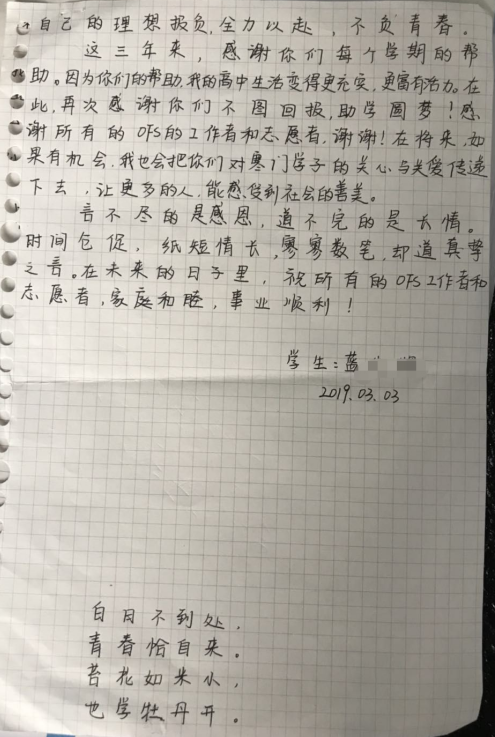 自己的理想报负,全力以赴,不负青春。
这三年来,感谢你们每个学期的帮
助。因为你们的帮助,我的高中生活变得更充实,更富有活力。在
此,再次感谢你们不图回报,助学圆梦!感
谢所有的OFS的工作者和志愿者,谢谢!在将来,如
果有机会,我也会把你们对寒门学子的关心与关爱传递
下去,让更多的人,能感受到社会的善美。
言不尽的是感恩,道不完的是长情。
时间仓促,纸短情长,寥寥数笔,却道真挚
之言。在未来的日子里,祝所有的OFS工作者和
志愿者,家庭和睦,事业顺利!
学生:蓝
2019.03.03
白日不到处,
青春恰自来。
苔花如米小,
也学牡丹开。